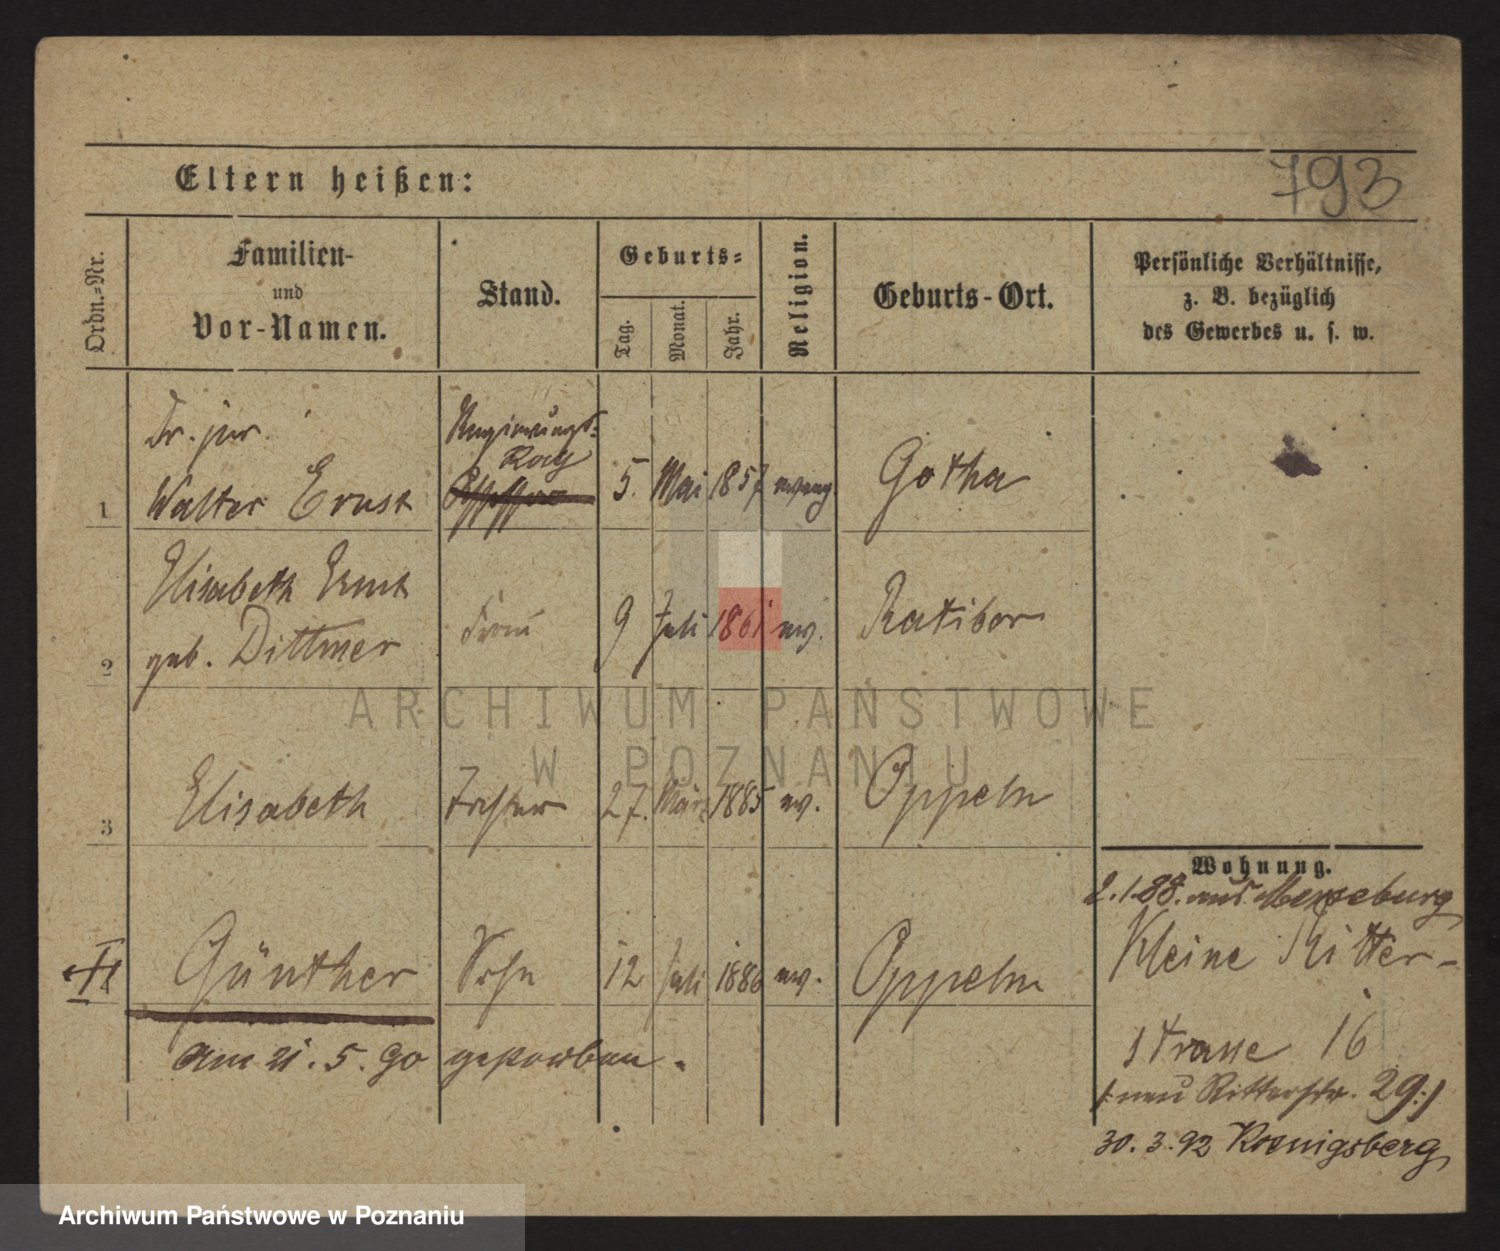 793
Eltern heißen:
Ordn.-Nr.
Familien-
und
Vor-Namen.
Stand.
Geburts-
Tag.
Monat.
Jahr.
Religion.
Geburts-Ort.
Persönliche Verhältnisse,
z. B. bezüglich
des Gewerbes u. s. w.
Dr. jur.
Regierungs-
Rath
Assessor
1 Walter Ernst 5. Mai 1857 evang Gotha
Elisabeth Ernst
2 geb. Dittmer Frau 9 Juli 1861 ev. Ratibor
ARCHIWUM PAŃSTWOWE
W POZNANIU
3 Elisabeth Tochter 27. März 1885 ev. Oppeln
Wohnung.
2.1.88. aus Merseburg
Günther Sohn 12 Juli 1886 ev. Oppeln
Kleine Ritter-
strasse 16
am 21. 5. 90 gestorben.
/: neu Ritterstr. 29 :/
30. 3. 92 Koenigsberg
Archiwum Państwowe w Poznaniu